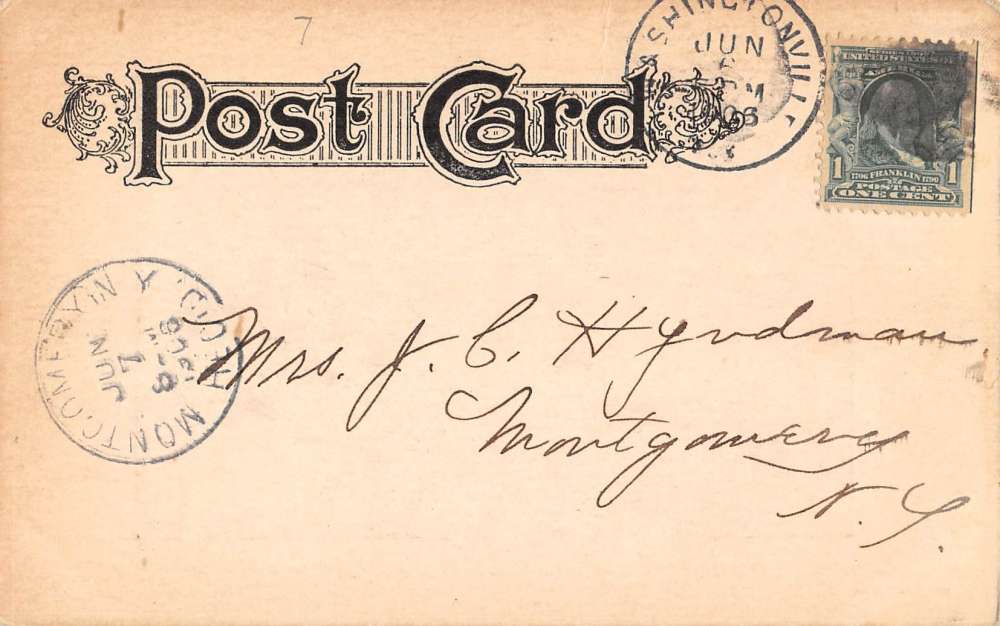 7
Post Card
WASHINGTONVILLE
JUN
M
06
SERIES 1902
UNITED STATES OF AMERICA
1 1706 FRANKLIN 1790 1
POSTAGE
ONE CENT
MONTGOMERY N Y REC'D.
JUN
7
8-
1906
Mrs. J. C. Hyndman
Montgomery
N. Y.